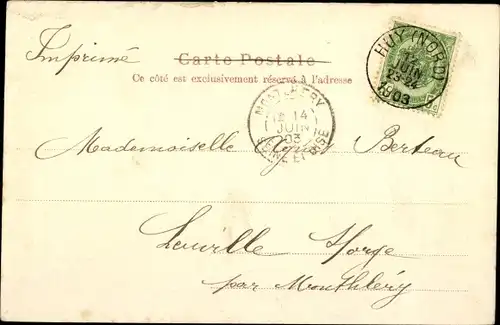 Imprimé
Carte Postale
Ce côté est exclusivement réservé à l'adresse
HUY (NORD)
12
JUIN
1903
MONTLHÉRY
14
JUIN
03
SEINE ET OISE
Mademoiselle Agnès Berteau
par Montlhéry